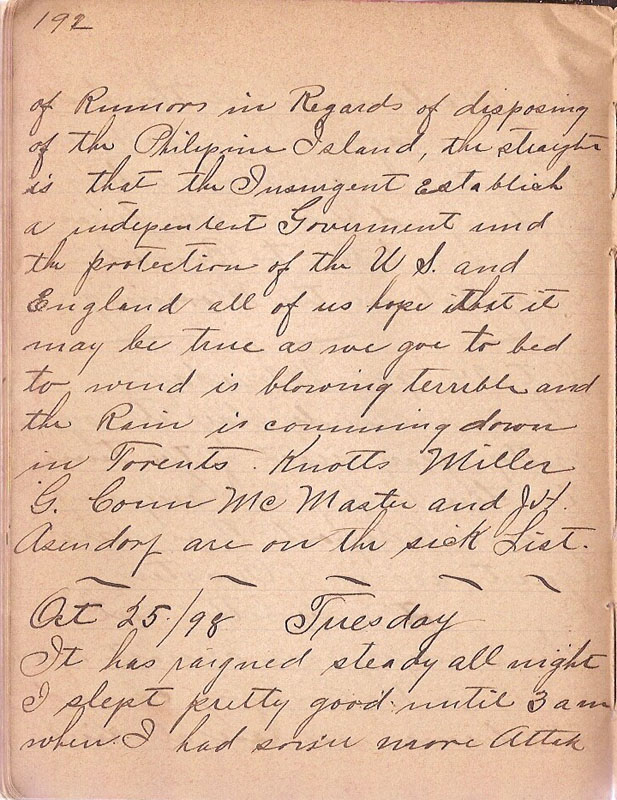 192
of Rumors in Regards of disposing
of the Philipine Island, the straight
is that the Insurgent Establish
a independent Goverment und
the protection of the U S. and
England all of us hope that it
may be true as we goe to bed
to wind is blowing terrible and
the Rain is comming down
in Torents. Knotts Miller
G. Conn Mc Master and J.H.
Asendorf are on the sick List.
Oct 25/98 Tuesday
It has raigned steady all night
I slept pretty good until 3 am
when I had more Attak